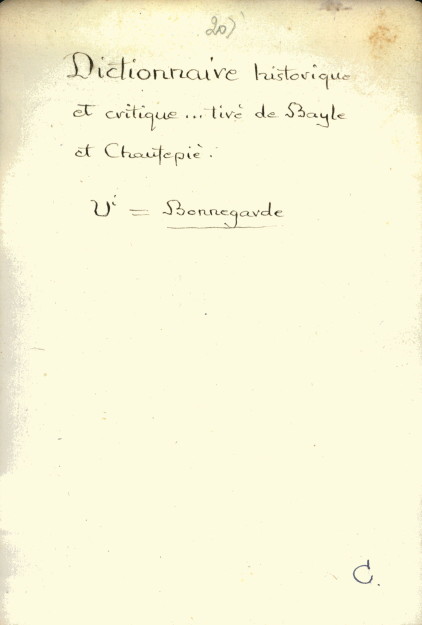 20)
Dictionnaire historique
et critique ... tiré de Bayle
et Chaufepié.
Vi = Bonnegarde
C.